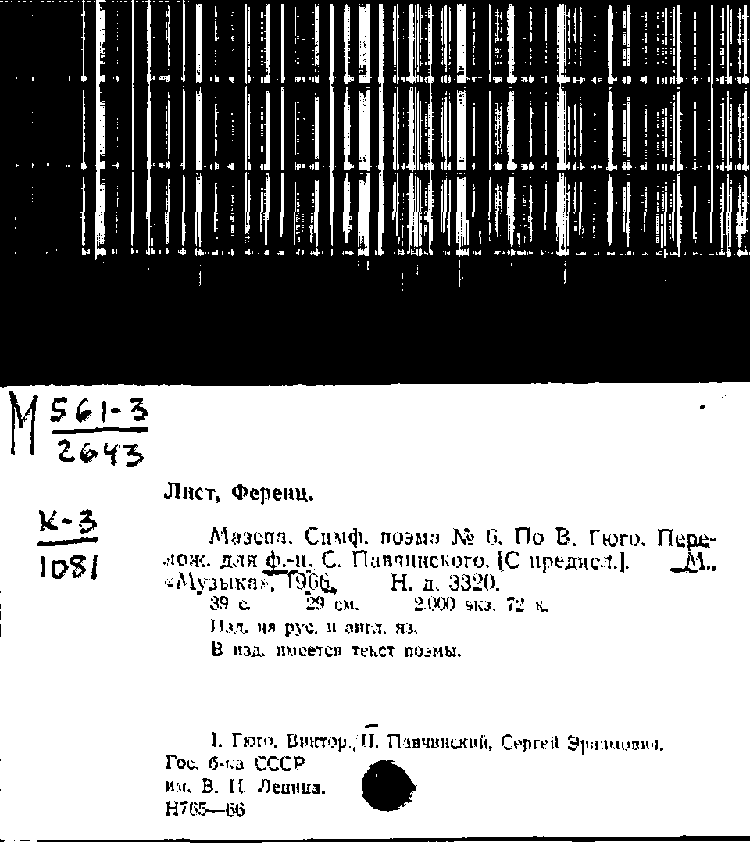 М 561-3
2643
К-3
1081
Лист, Ференц.
Мазепа. Симф. поэма № 6. По В. Гюго. Пере-
лож. для ф.-п. С. Павчинского. [С предисл.]. М.,
«Музыка», 1966. Н. д. 3320.
39 с. 29 см. 2.000 экз. 72 к.
Изд. на рус. и англ. яз.
В изд. имеется текст поэмы.
I. Гюго, Виктор. II. Павчинский, Сергей Эразмович.
Гос. б-ка СССР
им. В. И. Ленина.
Н765—66